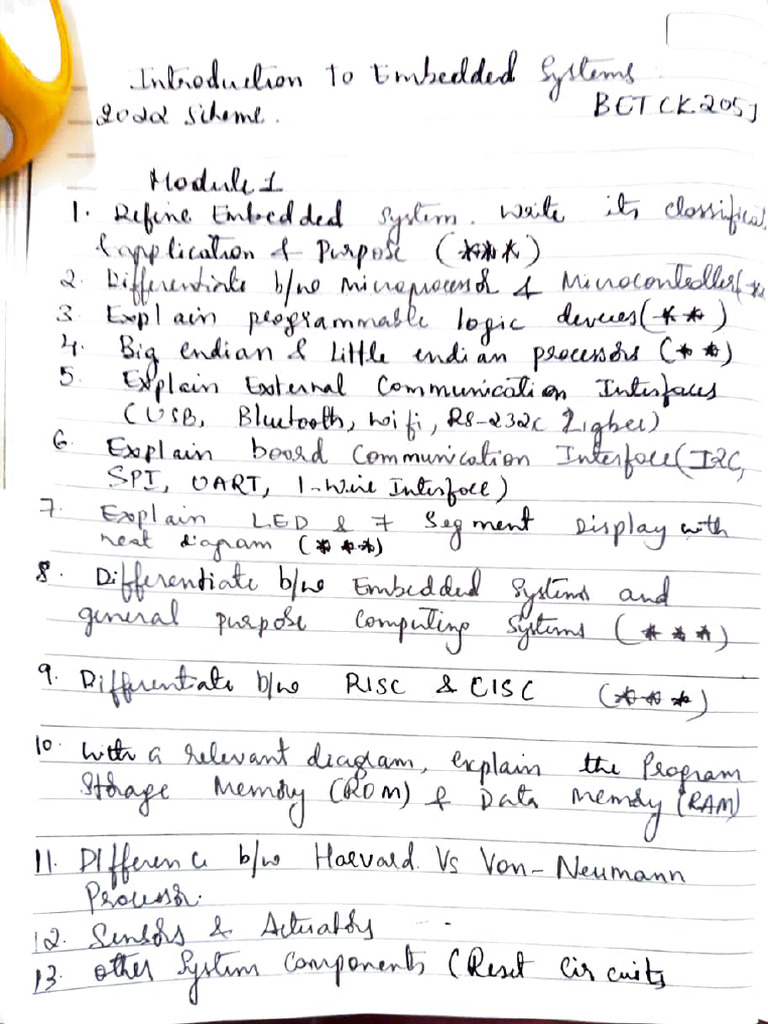 Introduction to Embedded Systems
2022 Scheme. BETCK205J
Module 1
1. Define Embedded System. Write its classifica
& application & Purpose (***)
2. Differentiate b/w microprocessor & Microcontroller(*
3. Explain programmable logic devices(**)
4. Big endian & Little endian processors (**)
5. Explain External Communication Interfaces
(USB, Bluetooth, wifi, RS-232C Zigbee)
6. Explain board Communication Interface(I2C,
SPI, UART, 1-Wire Interface)
7. Explain LED & 7 Segment Display with
neat diagram (***)
8. Differentiate b/w Embedded Systems and
general purpose Computing Systems (***)
9. Differentiate b/w RISC & CISC (***)
10. With a relevant diagram, explain the Program
Storage Memory (ROM) & Data memory (RAM)
11. Difference b/w Harvard Vs Von-Neumann
Processor.
12. Sensors & Actuators
13. other System Components (Reset Circuits